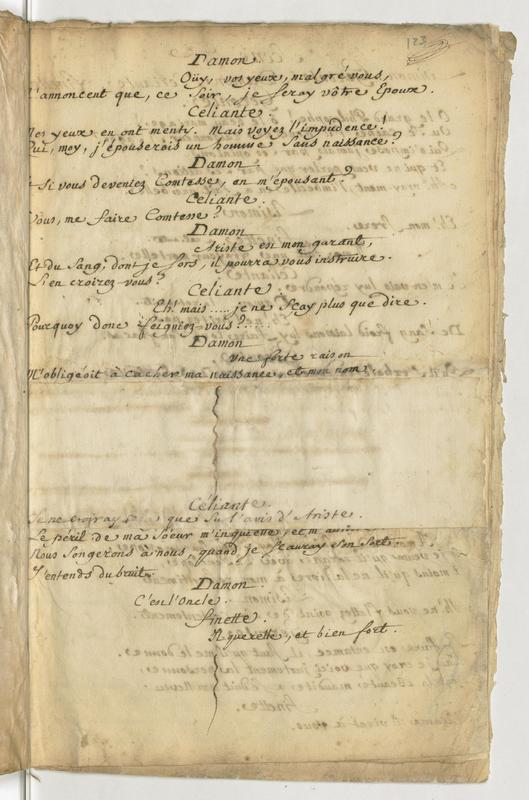 123
Damon.
Oüy, vos yeux, malgré vous,
M'annoncent que, ce soir, je seray vôtre Epoux.
Céliante.
Mes yeux en ont menty. Mais voyez l'impudence!
Qui, moy, j'épouserois un homme sans naissance?
Damon.
Si vous deveniez Comtesse, en m'épousant?
Céliante.
Vous, me faire Comtesse?
Damon
Ariste est mon garant,
Et du Sang, dont je sors, il pourra vous instruire.
L'en croirez vous?
Céliante.
Eh! mais..... je ne sçay plus que dire.
Pourquoy donc feigniez-vous?.....
Damon
une forte raison
M'obligeoit à cacher ma naissance, et mon nom.
Céliante.
Je ne croiray que sur l'avis d'Ariste.
Le péril de ma Soeur m'inquiette, et m'
Nous songerons à nous, quand je sçauray son sort.
J'entends du bruit.
Damon.
C'est l'Oncle.
Finette.
Il querelle, et bien fort.